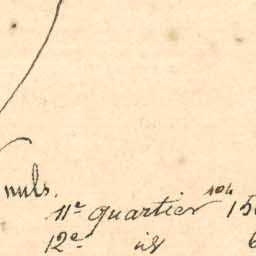 nuls.
11e quartier 104 15
12e id 6